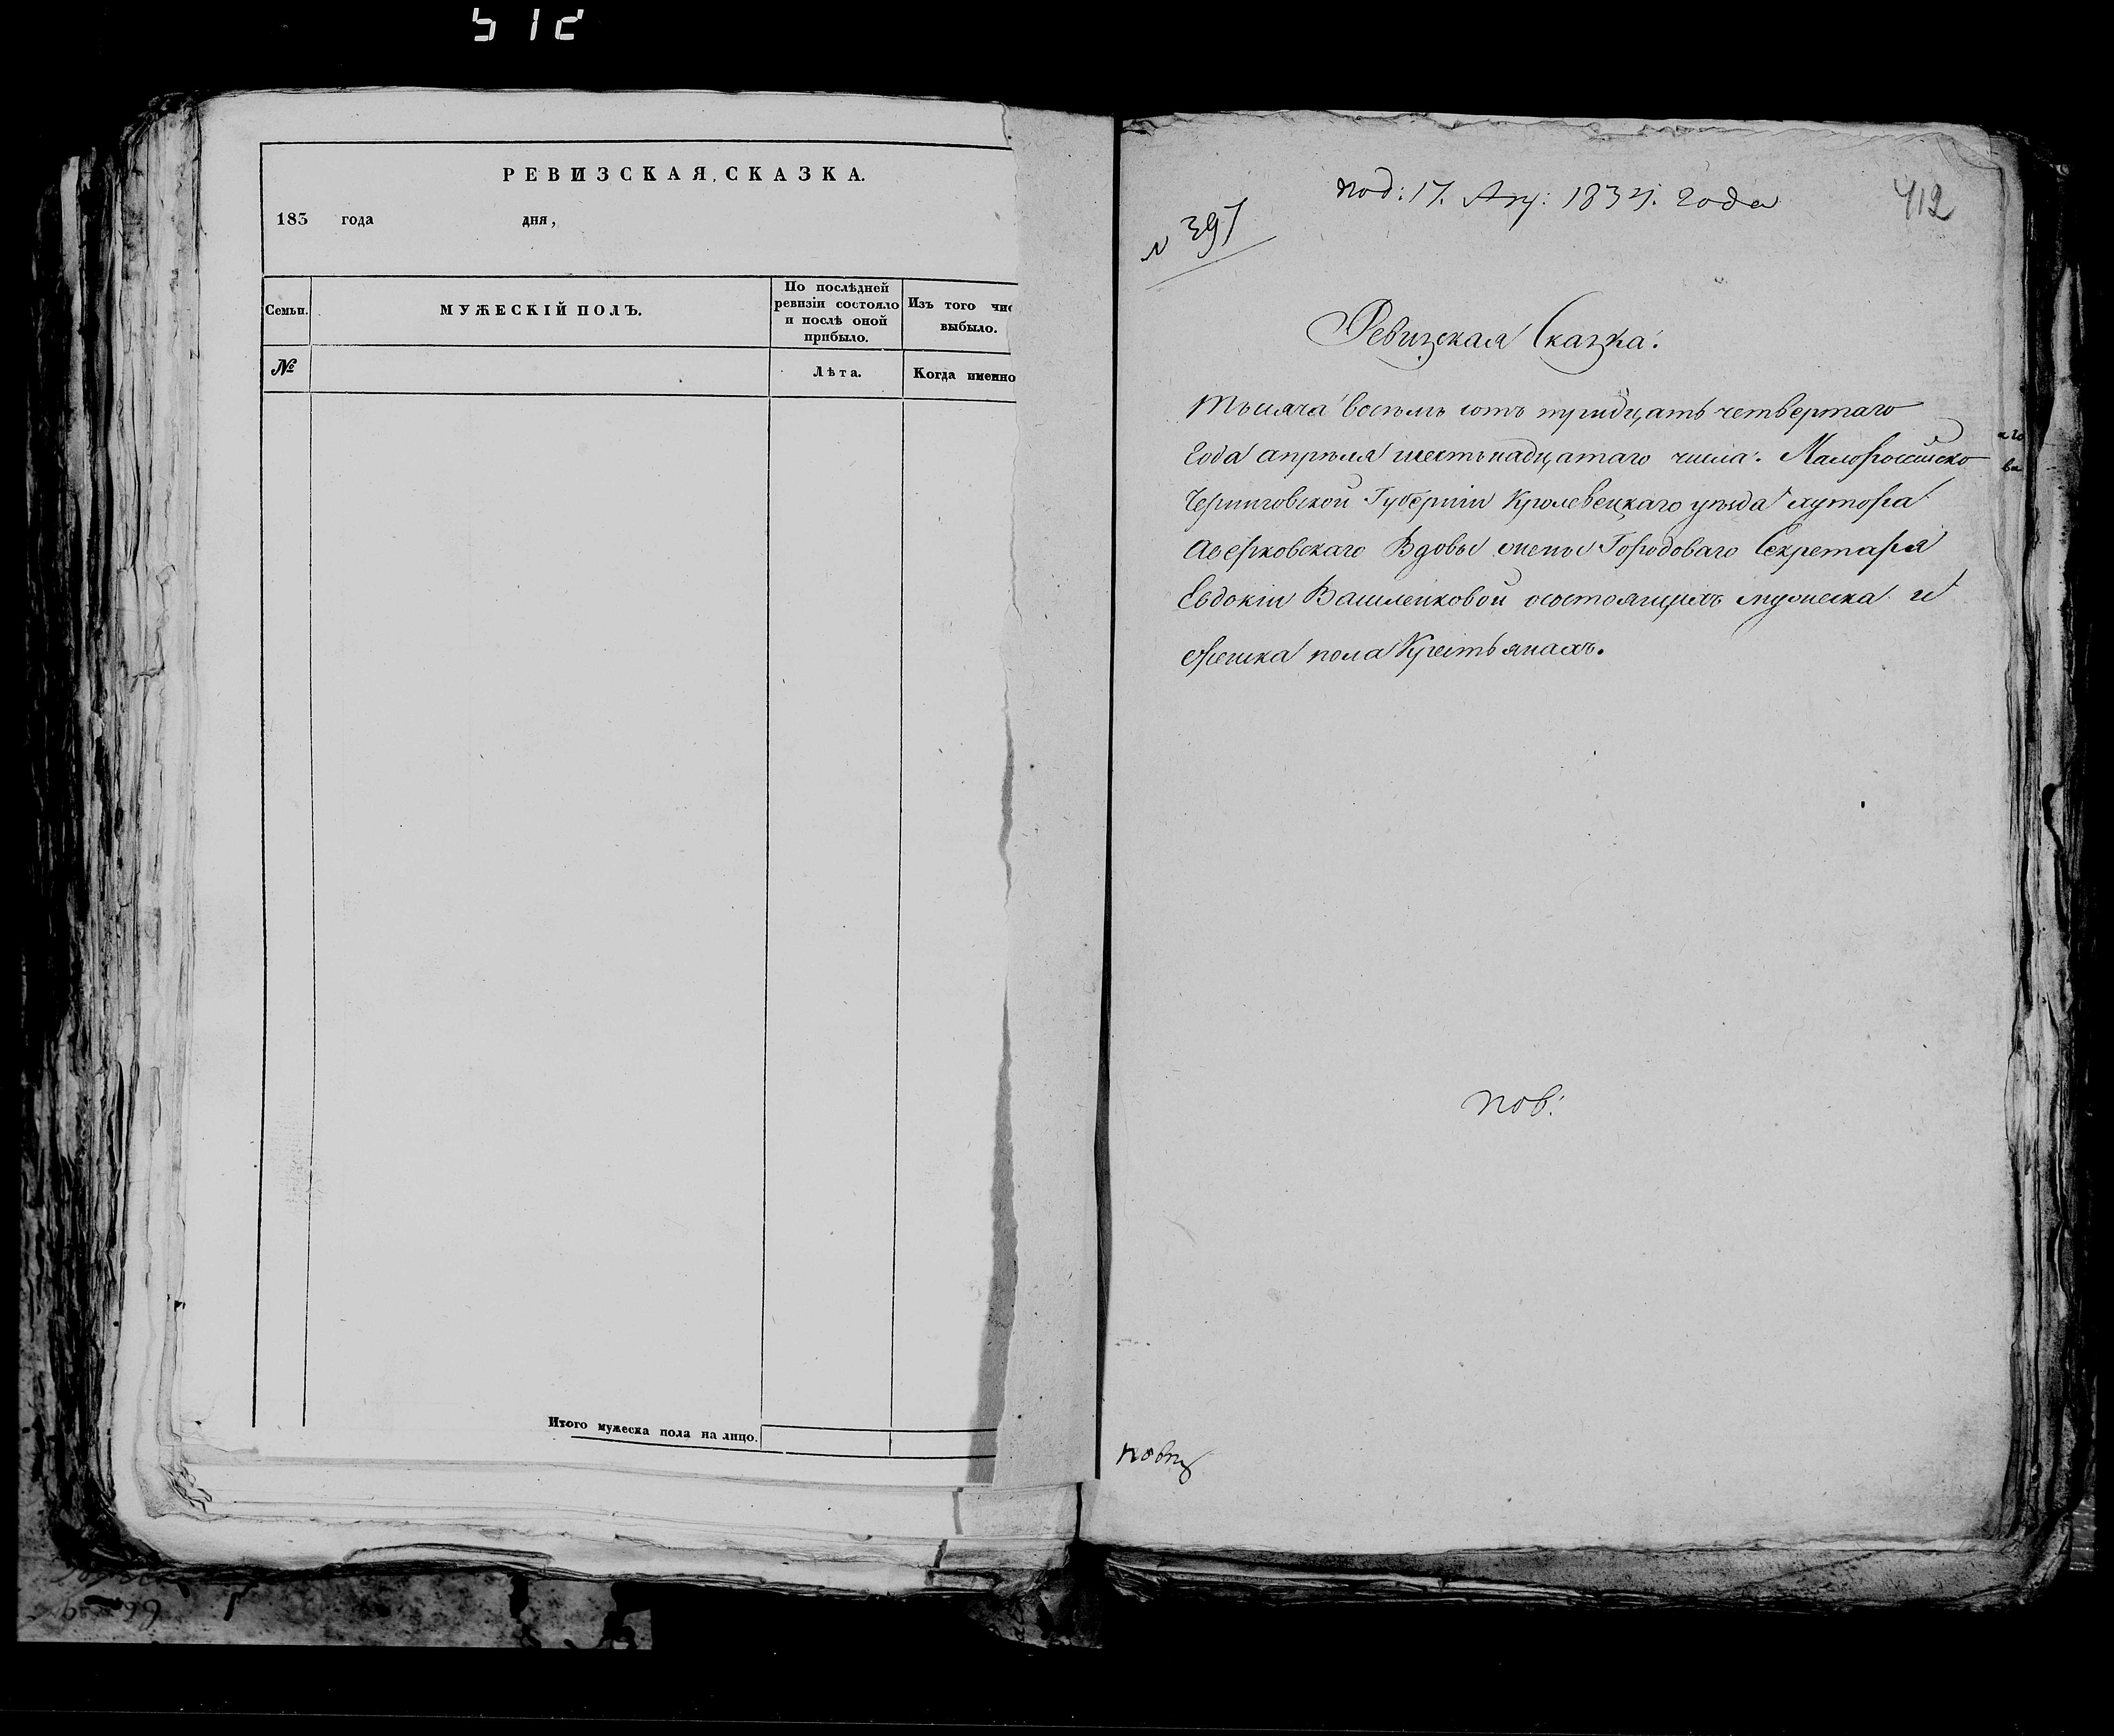 512
РЕВИЗСКАЯ СКАЗКА.
183 года дня,
Семьи.
МУЖЕСКІЙ ПОЛЪ.
По послѣдней
ревизіи состояло
и послѣ оной
прибыло.
Изъ того чис
выбыло.
№
Лѣта.
Когда именно
Итого мужеска пола на лицо.
под: 17. Апр: 1834. года
412
№ 397
Ревизская Сказка.
Тысяча восемь сотъ тридцать четвертаго
Года апрѣля шестьнадцатаго числа. Малоросійско
Черниговской Губерніи Кролевецкаго уѣзда хутора
Аверковскаго Вдовы жены Городоваго Секретаря
Евдокіи Василенковой осостоящихъ мужеска и
женска пола Крестьянахъ.
аго
ва
пов: